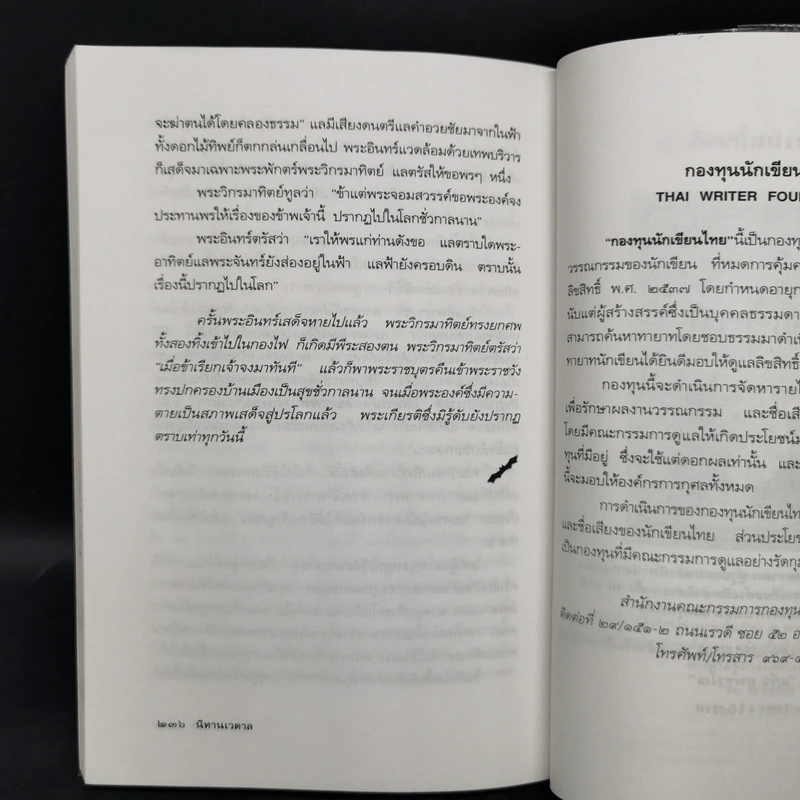 จะฆ่าตนได้โดยคลองธรรม” แลมีเสียงดนตรีแลคำอวยชัยมาจากในฟ้า
ทั้งดอกไม้ทิพย์ก็ตกกล่นเกลื่อนไป พระอินทร์แวดล้อมด้วยเทพบริวาร
ก็เสด็จมาเฉพาะพระพักตร์พระวิกรมาทิตย์ แลตรัสให้ขอพรๆ หนึ่ง
พระวิกรมาทิตย์ทูลว่า “ข้าแต่พระจอมสวรรค์ขอพระองค์จง
ประทานพรให้เรื่องของข้าพเจ้านี้ ปรากฏไปในโลกชั่วกาลนาน”
พระอินทร์ตรัสว่า “เราให้พรแก่ท่านดังขอ แลตราบใดพระ-
อาทิตย์แลพระจันทร์ยังส่องอยู่ในฟ้า แลฟ้ายังครอบดิน ตราบนั้น
เรื่องนี้ปรากฏไปในโลก”
ครั้นพระอินทร์เสด็จหายไปแล้ว พระวิกรมาทิตย์ทรงยกศพ
ทั้งสองทิ้งเข้าไปในกองไฟ ก็เกิดมีพีระสองตน พระวิกรมาทิตย์ตรัสว่า
“เมื่อข้าเรียกเจ้าจงมาทันที” แล้วก็พาพระราชบุตรคืนเข้าพระราชวัง
ทรงปกครองบ้านเมืองเป็นสุขชั่วกาลนาน จนเมื่อพระองค์ซึ่งมีความ-
ตายเป็นสภาพเสด็จสู่ปรโลกแล้ว พระเกียรติซึ่งมิรู้ดับยังปรากฏ
ตราบเท่าทุกวันนี้
๒๓๖ นิทานเวตาล
กองทุนนักเขียน
THAI WRITER FOU
“กองทุนนักเขียนไทย”นี้เป็นกองทุ
วรรณกรรมของนักเขียน ที่หมดการคุ้มค
ลิขสิทธิ์ พ.ศ. ๒๕๓๗ โดยกำหนดอายุก
นับแต่ผู้สร้างสรรค์ซึ่งเป็นบุคคลธรรมดา
สามารถค้นหาทายาทโดยชอบธรรมมาดำเนิ
ทายาทนักเขียนได้ยินดีมอบให้ดูแลลิขสิทธิ์
กองทุนนี้จะดำเนินการจัดหารายไ
เพื่อรักษาผลงานวรรณกรรม และชื่อเสี
โดยมีคณะกรรมการดูแลให้เกิดประโยชน์ม
ทุนที่มีอยู่ ซึ่งจะใช้แต่ดอกผลเท่านั้น และ
นี้จะมอบให้องค์กรการกุศลทั้งหมด
การดำเนินการของกองทุนนักเขียนไท
และชื่อเสียงของนักเขียนไทย ส่วนประโยช
เป็นกองทุนที่มีคณะกรรมการดูแลอย่างรัดกุม
สำนักงานคณะกรรมการกองทุน
ติดต่อที่ ๒๙/๑๕๑-๒ ถนนเรวดี ซอย ๕๒ อ
โทรศัพท์/โทรสาร ๙๖๙-